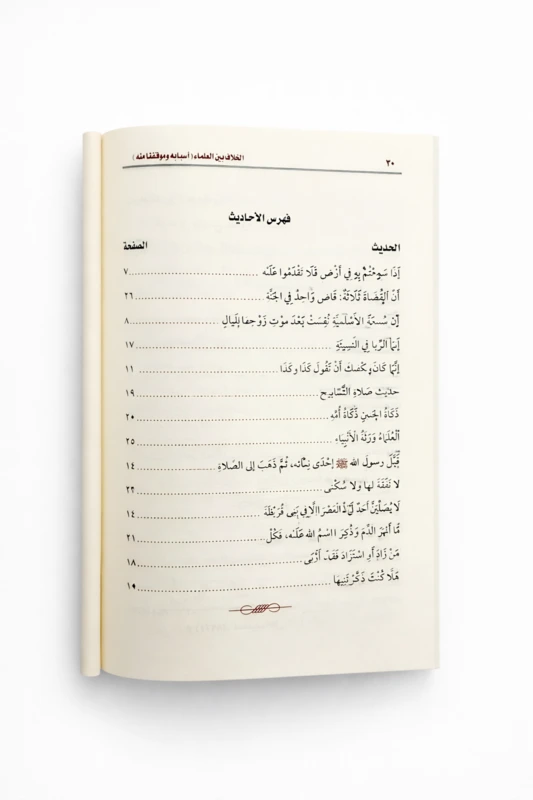 ٣٠ الخلاف بين العلماء (أسبابه وموقفنا منه)
فهرس الأحاديث
الحديث الصفحة
إِذَا سَمِعْتُمْ بِهِ فِي أَرْضٍ فَلَا تَقْدَمُوا عَلَيْه ........ ٧
أَنَّ الْقُضَاةَ ثَلَاثَةٌ: قَاضٍ وَاحِدٌ فِي الجَنَّة ........ ٢٦
إِنَّ سُبَيْعَةَ الأَسْلَمِيَّةِ نُفِسَتْ بَعْدَ مَوْتِ زَوْجِهَا لِلَيَالٍ ........ ٨
إِنَّمَا الرِّبَا فِي النَّسِيئَةِ ........ ١٧
إِنَّمَا كَانَ يَكْفِيكَ أَنْ تَقُولَ كَذَا وَكَذَا ........ ١١
حديث صَلاةِ التَّسَابِيحِ ........ ١٩
ذَكَاةُ الجَنِينِ ذَكَاةُ أُمِّهِ ........ ٢٠
الْعُلَمَاءُ وَرَثَةُ الْأَنْبِيَاء ........ ٢٥
قَبَّلَ رسولَ الله ﷺ إحْدَى نِسَائه، ثُمَّ ذَهَبَ إلى الصَّلاةِ ........ ١٤
لا نَفَقَةَ لها ولا سُكْنَى ........ ٢٣
لَا يُصَلِّيَنَّ أَحَدٌ الْعَصْرَ إِلَّا فِي بَنِي قُرَيْظَةَ ........ ١٤
مَّا أَنْهَرَ الدَّمَ وَذُكِرَ اسْمُ الله عَلَيْه، فَكُلْ ........ ٢١
مَنْ زَادَ أَوِ اسْتَزَادَ فَقَدْ أَرْبَى ........ ١٨
هَلَّا كُنْتَ ذَكَّرْتَنِيهَا ........ ١٥